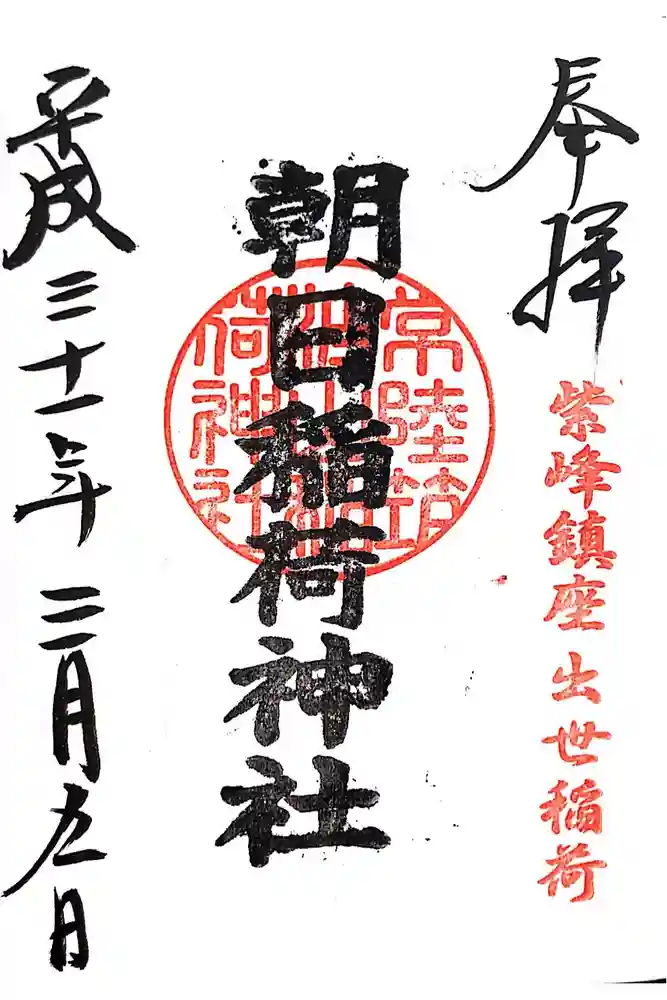 奉拝
紫峰鎮座 出世稲荷
朝日稲荷神社
常陸筑
荷神社
平成三十一年 三月九日